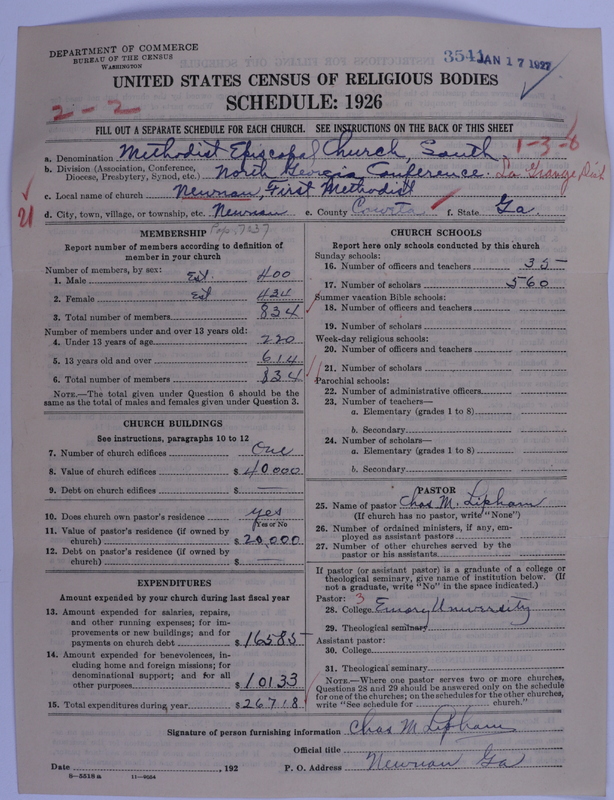 DEPARTMENT OF COMMERCE
BUREAU OF THE CENSUS
WASHINGTON
3541 JAN 17 1927
UNITED STATES CENSUS OF RELIGIOUS BODIES
SCHEDULE: 1926
2-2
FILL OUT A SEPARATE SCHEDULE FOR EACH CHURCH. SEE INSTRUCTIONS ON THE BACK OF THIS SHEET
1-3-6
a. Denomination Methodist Episcopal Church, South
b. Division (Association, Conference, Diocese, Presbytery, Synod, etc.) North Georgia Conference. La Grange Dist
c. Local name of church Newnan, First Methodist
21
d. City, town, village, or township, etc. Newnan e. County Coweta f. State Ga.
Pop. 7037
MEMBERSHIP
Report number of members according to definition of member in your church
Number of members, by sex:
1. Male Est. 400
2. Female Est 434
3. Total number of members 834
Number of members under and over 13 years old:
4. Under 13 years of age 220
5. 13 years old and over 614
6. Total number of members 834
NOTE.—The total given under Question 6 should be the same as the total of males and females given under Question 3.
CHURCH BUILDINGS
See instructions, paragraphs 10 to 12
7. Number of church edifices One
8. Value of church edifices $ 40000
9. Debt on church edifices $ —
10. Does church own pastor's residence yes
Yes or No
11. Value of pastor's residence (if owned by church) $ 20,000
12. Debt on pastor's residence (if owned by church) $ —
EXPENDITURES
Amount expended by your church during last fiscal year
13. Amount expended for salaries, repairs, and other running expenses; for improvements or new buildings; and for payments on church debt $ 16585
14. Amount expended for benevolences, including home and foreign missions; for denominational support; and for all other purposes $ 10133
15. Total expenditures during year $ 26718
CHURCH SCHOOLS
Report here only schools conducted by this church
Sunday schools:
16. Number of officers and teachers 35
17. Number of scholars 560
Summer vacation Bible schools:
18. Number of officers and teachers
19. Number of scholars
Week-day religious schools:
20. Number of officers and teachers
21. Number of scholars
Parochial schools:
22. Number of administrative officers
23. Number of teachers—
a. Elementary (grades 1 to 8)
b. Secondary
24. Number of scholars—
a. Elementary (grades 1 to 8)
b. Secondary
PASTOR
25. Name of pastor Chas M. Lipham
(If church has no pastor, write "None")
26. Number of ordained ministers, if any, employed as assistant pastors
27. Number of other churches served by the pastor or his assistants
If pastor (or assistant pastor) is a graduate of a college or theological seminary, give name of institution below. (If not a graduate, write "No" in the space indicated.)
Pastor: 3
28. College Emory University
29. Theological seminary
Assistant pastor:
30. College
31. Theological seminary
NOTE.—Where one pastor serves two or more churches, Questions 28 and 29 should be answered only on the schedule for one of the churches; on the schedules for the other churches, write "See schedule for church."
Signature of person furnishing information Chas M Lipham
Official title
Date , 192 P. O. Address Newnan Ga
8—5519 a 11—9084